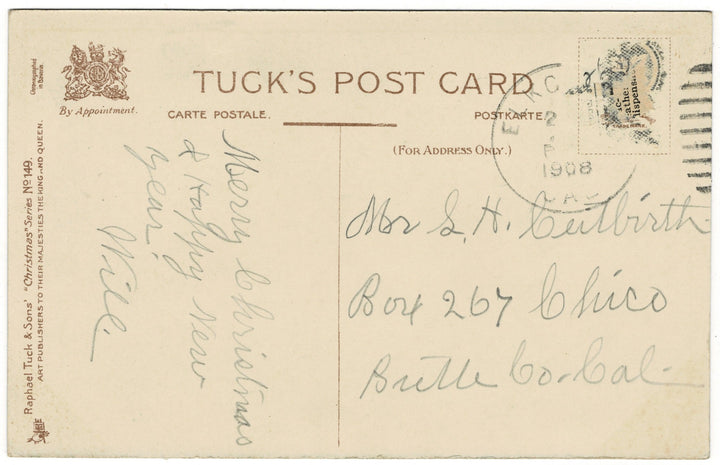 Chromographed
in Bavaria.
By Appointment.
TUCK'S POST CARD
CARTE POSTALE.
POSTKARTE.
(FOR ADDRESS ONLY.)
Raphael Tuck & Sons' "Christmas" Series Nº 149.
ART PUBLISHERS TO THEIR MAJESTIES THE KING AND QUEEN.
Merry Christmas
& Happy New
year.
Will.
2
1908
CAL
Mr S. H. Cutbirth
Box 267 Chico
Butte Co. Cal.